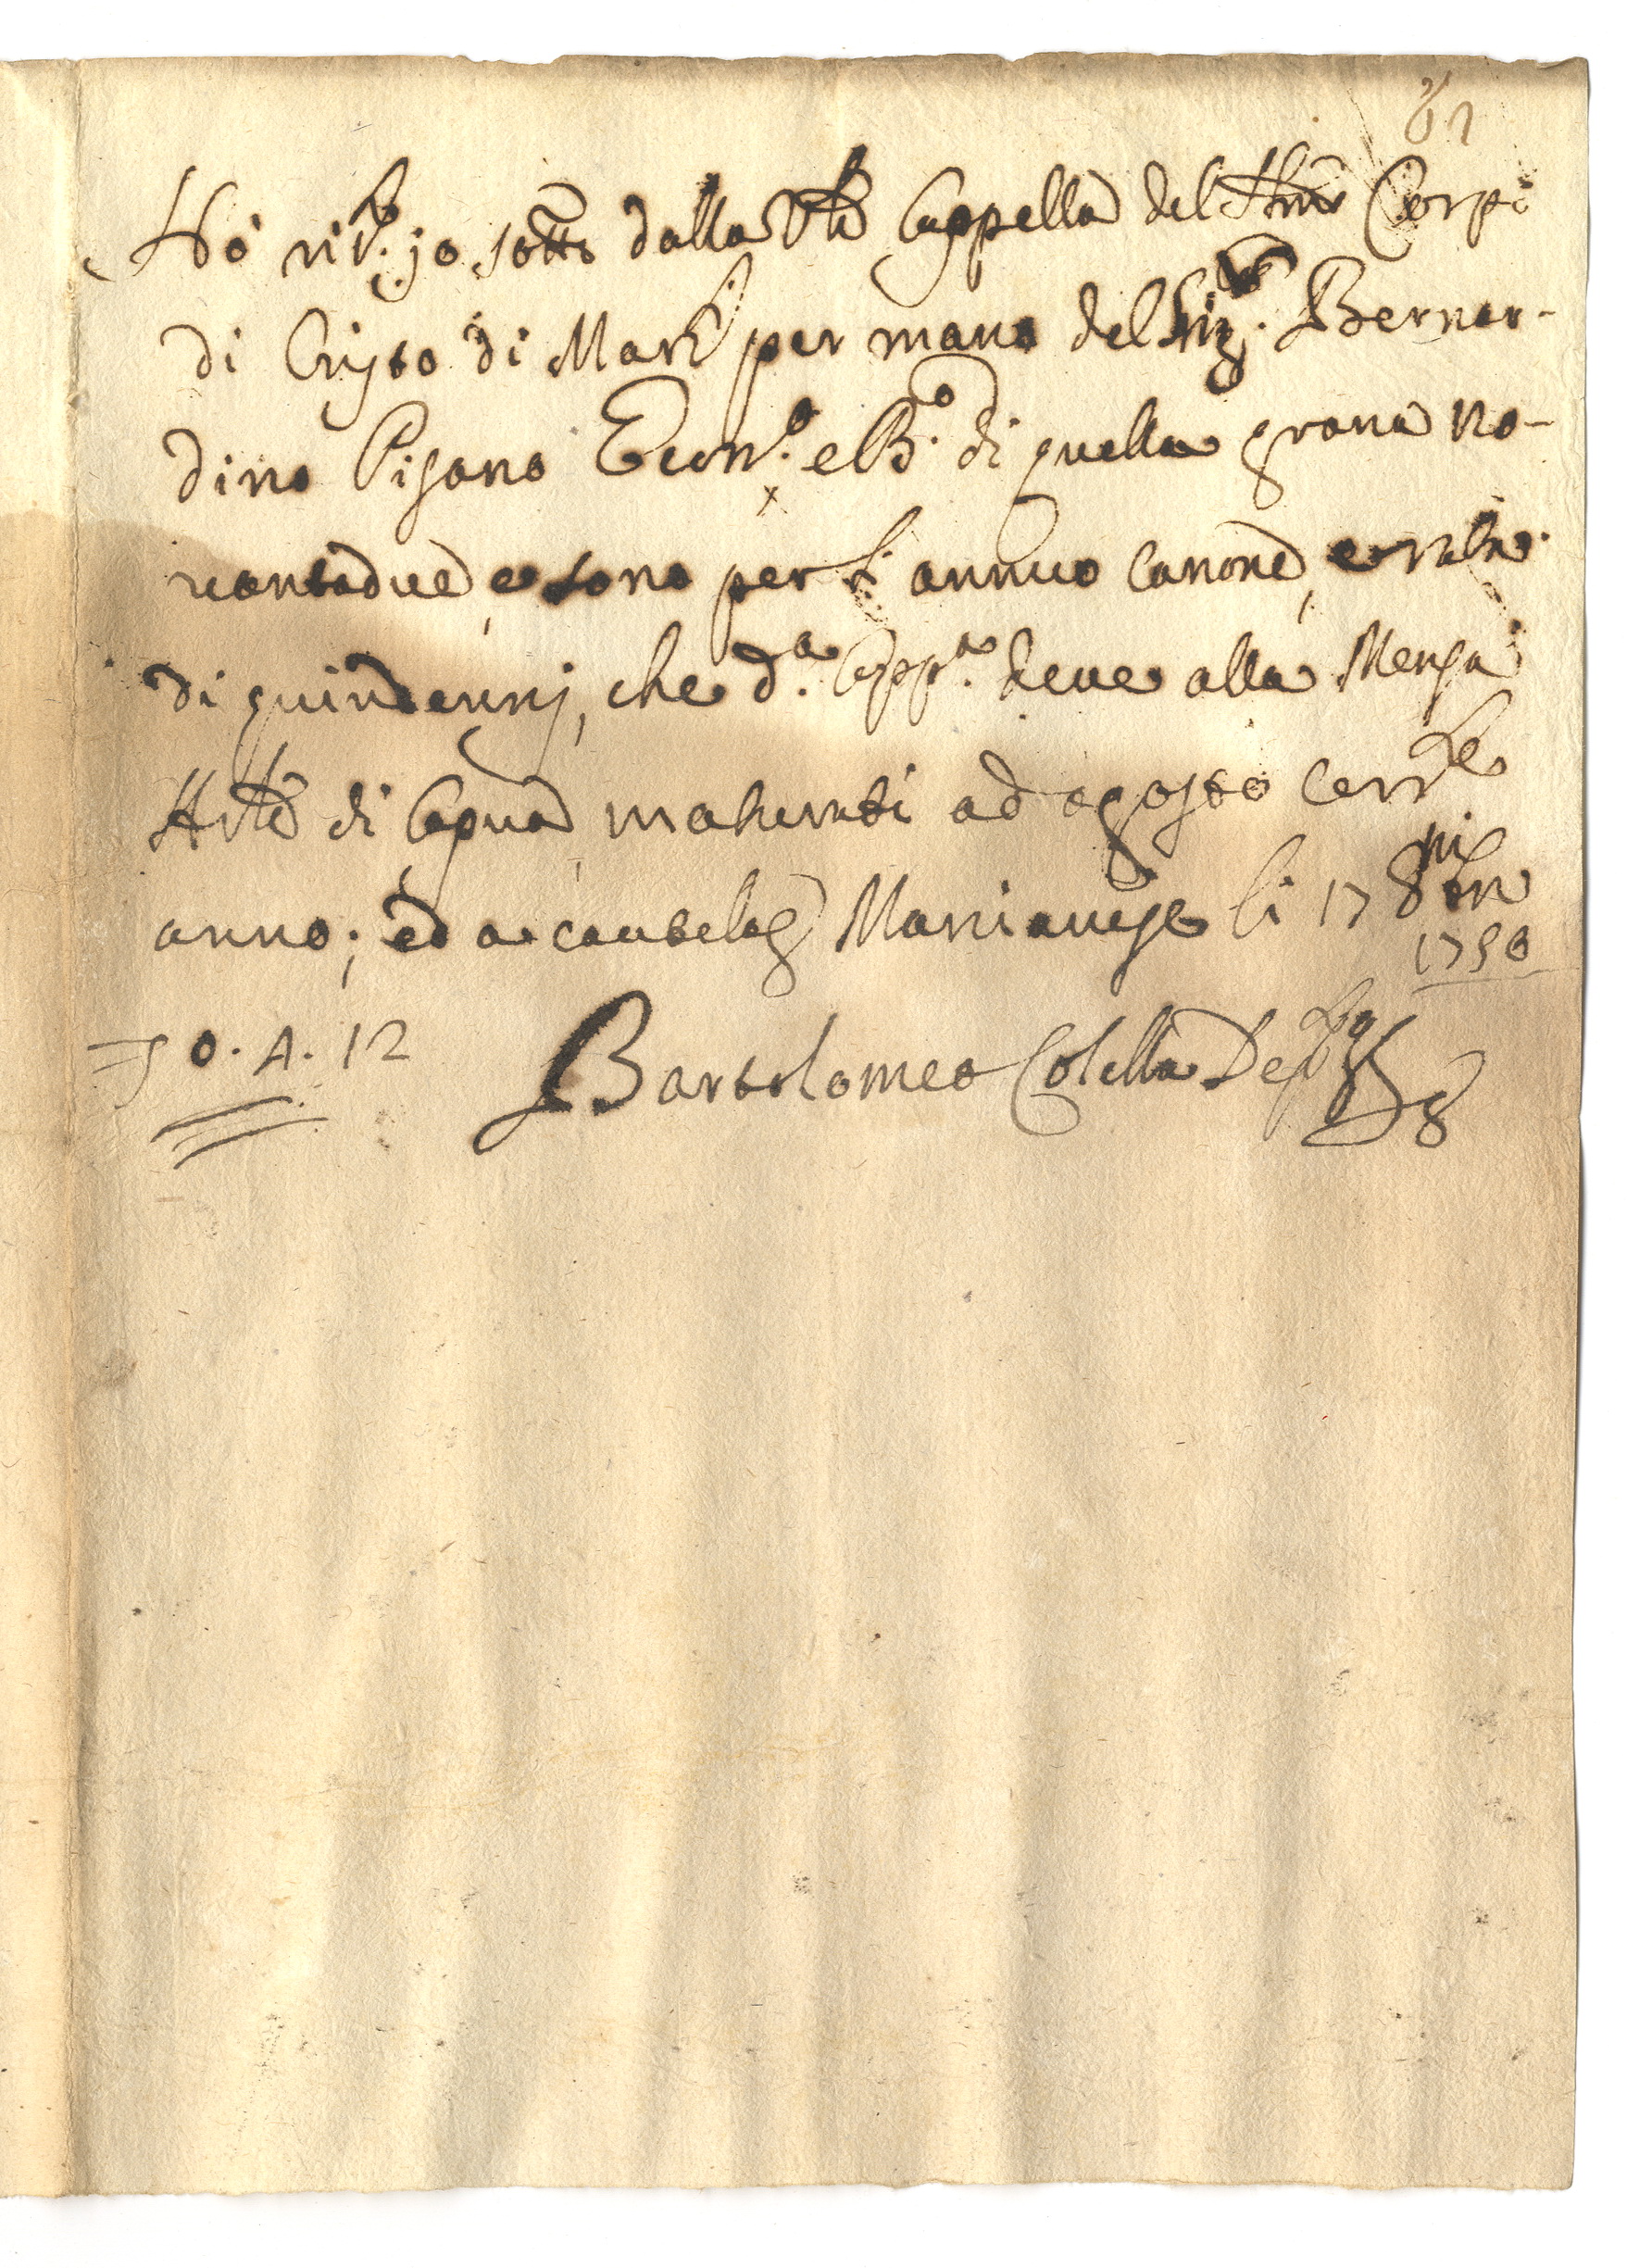 Hò ric.to jo sotto dalla Ven.le Cappella del SSmo Corpo
di Cristo di Mar.se per mano del Sig.r Bernar-
dino Pisano Econ.o e B.o di quella grana no-
vantadue, e sono per l'annuo Canone, e rata
di quindennj, che d.a Capp.a deve alla Mensa
Arcile di Capua maturati ad agosto corr.te
anno; ed a cautela Marcianise li 17 8bre
1750
0. 4. 12 Bartolomeo Colella Dep.to